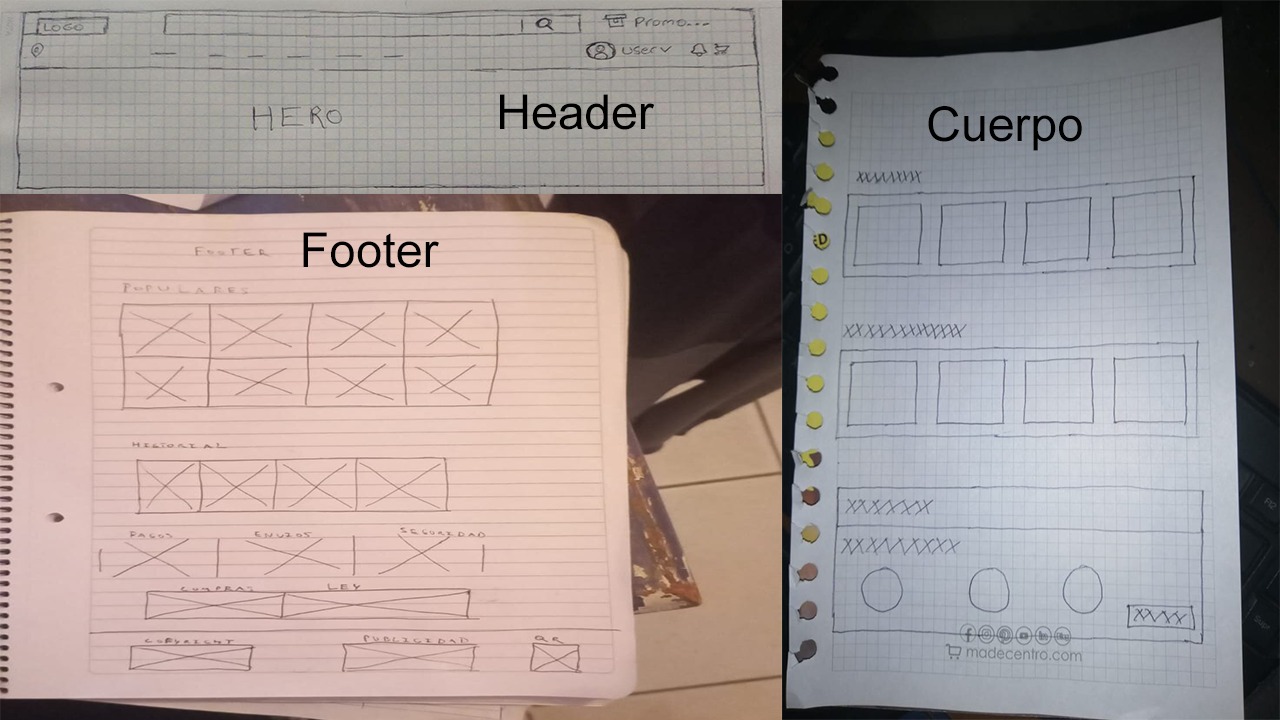 LOGO
Promo...
user
HERO
Header
FOOTER
Footer
POPULARES
HISTORIAL
PAGOS ENVIOS SEGURIDAD
COMPRAS LEY
COPYRIGHT PUBLICIDAD QR
Cuerpo
XXXXXXX
XXXXXXXXXXXX
XXXXXX
XXXXXXXXX
XXXX
madecentro.com